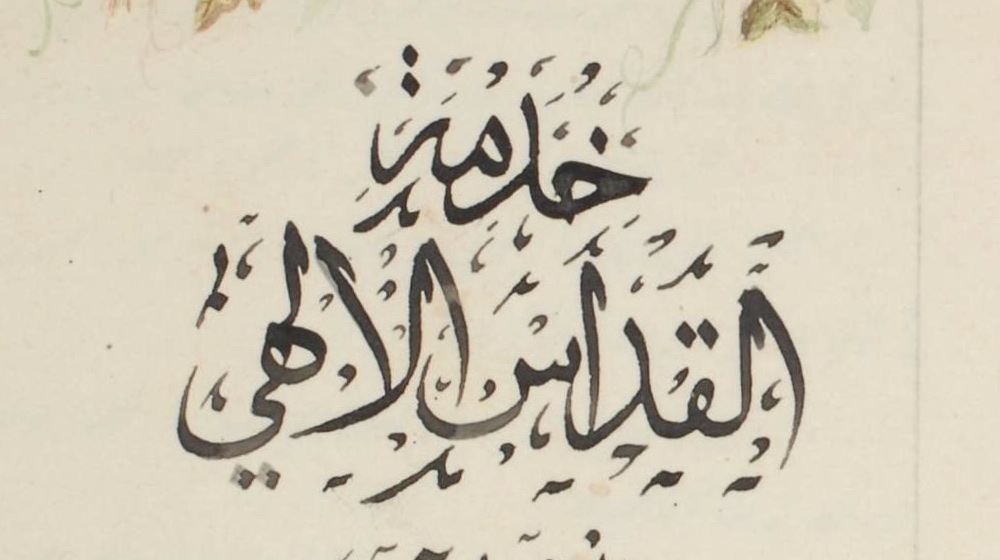 خدمة
القداس الالهي